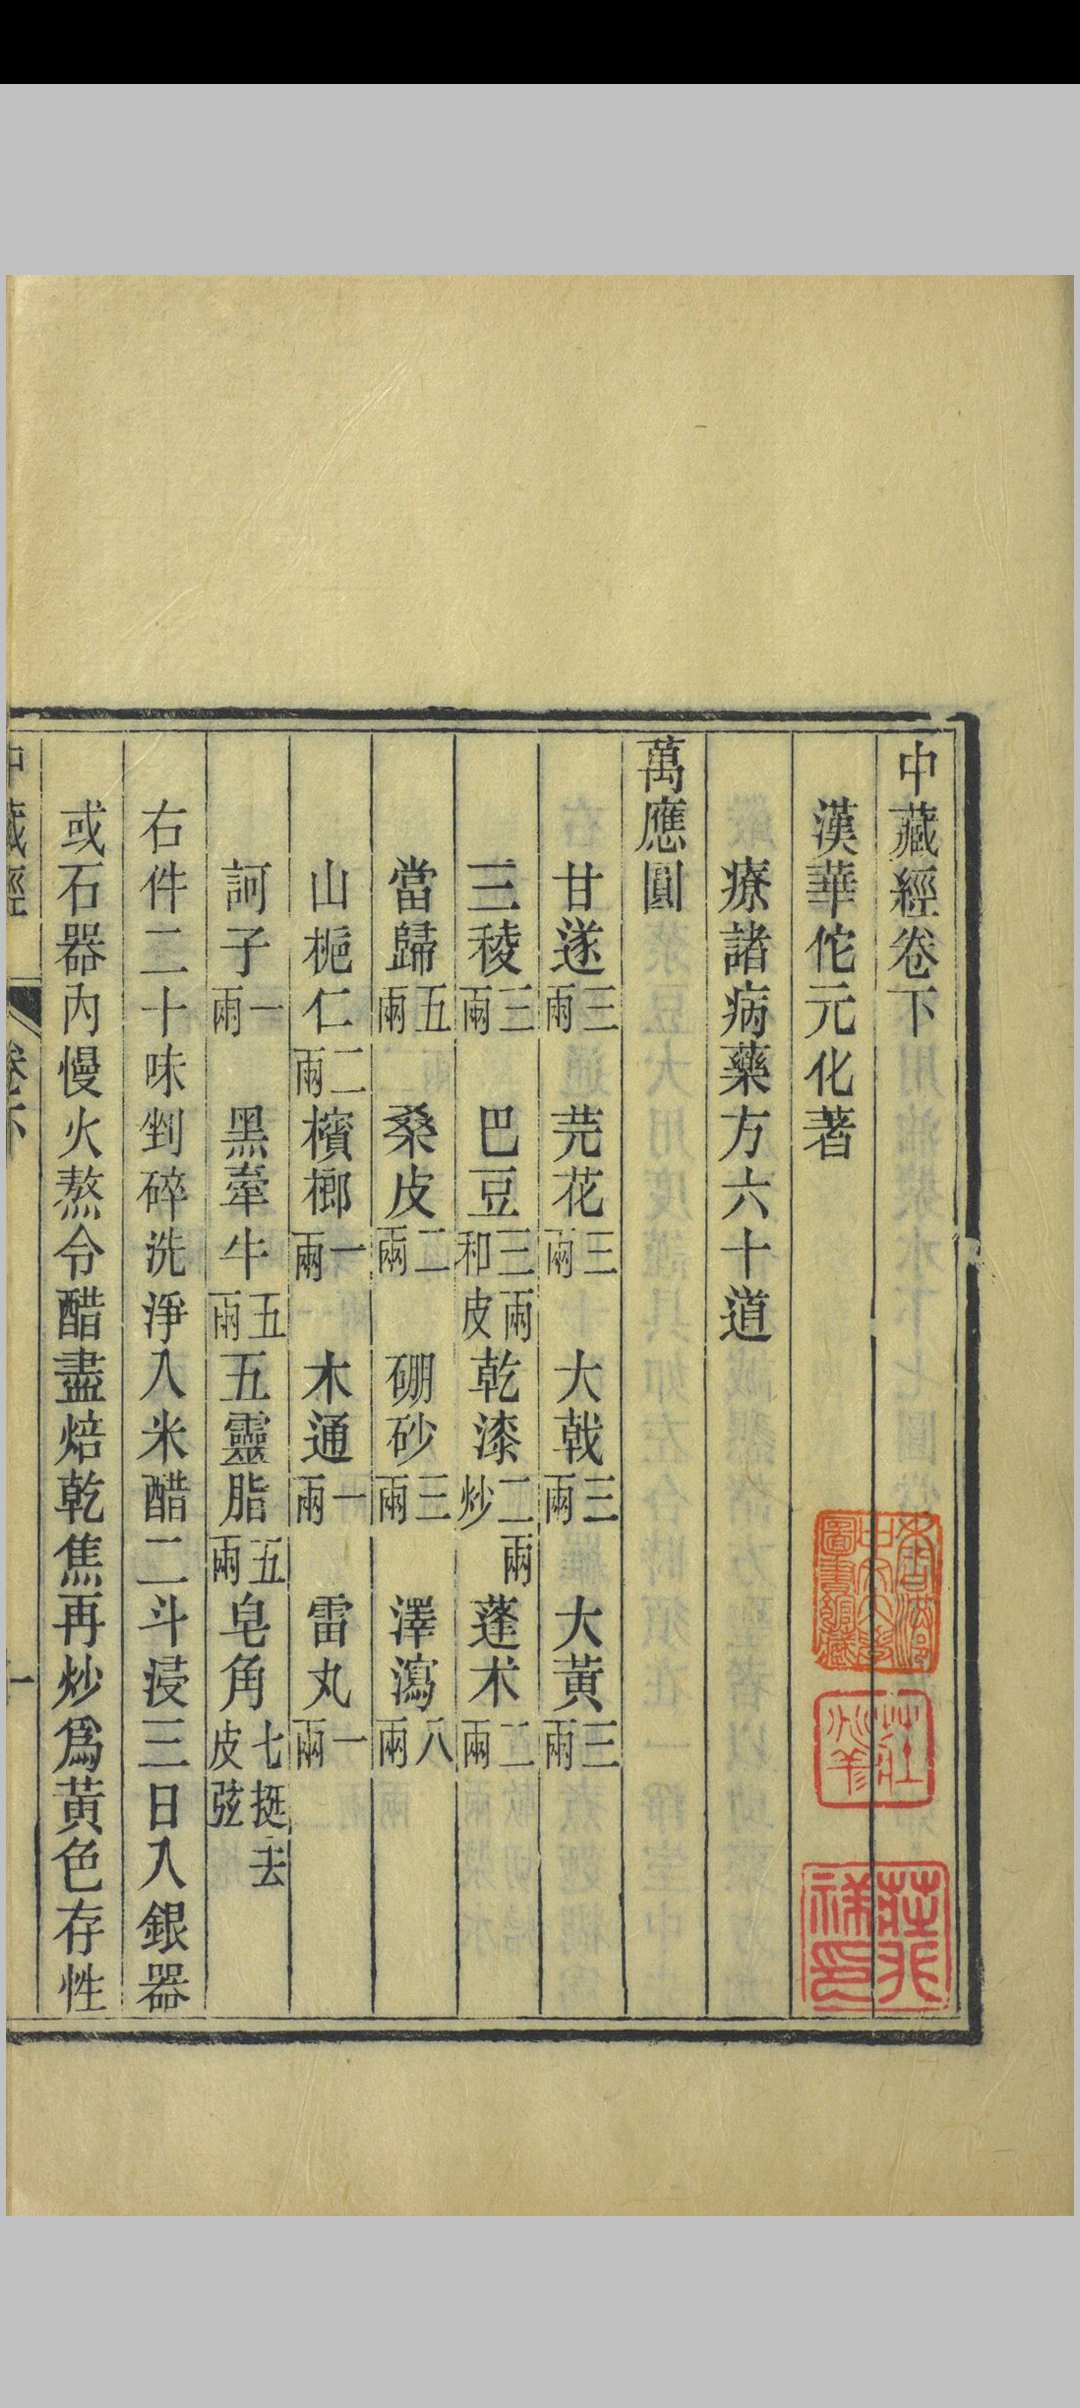 中藏經卷下
漢華佗元化著
療諸病藥方六十道
萬應圓
甘遂三兩 芫花三兩 大戟三兩 大黃三兩
三稜三兩 巴豆三兩和皮 乾漆二兩炒 蓬朮二兩
當歸五兩 桑皮二兩 硼砂三兩 澤瀉八兩
山梔仁二兩 檳榔一兩 木通一兩 雷丸一兩
訶子一兩 黑牽牛五兩 五靈脂五兩 皂角七挺去皮弦
右件二十味剉碎洗淨入米醋二斗浸三日入銀器
或石器內慢火熬令醋盡焙乾焦再炒爲黃色存性
中藏經 卷下 一